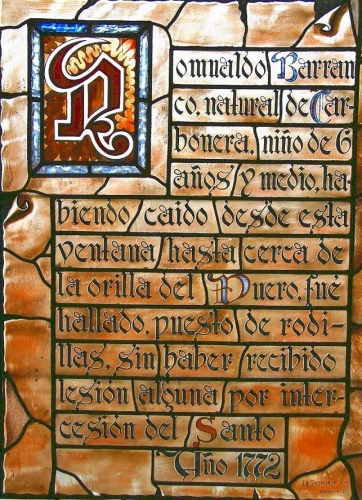 Romualdo Barran
co, natural de Car
bonera, niño de 6
años y medio, ha
biendo caido desde esta
ventana hasta cerca de
la orilla del Duero, fue
hallado, puesto de rodi-
llas, sin haber recibido
lesión alguna por inter-
cesión del Santo
Año 1772